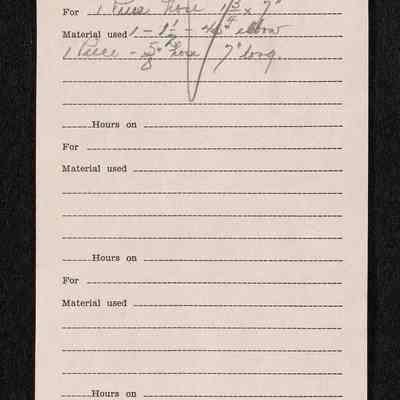 For 1 Piece hose 1 3/8 x 7"
Material used 1 - 1 1/2 - 45° elbow
1 Piece - 5/8" hose 7" long.
Hours on
For
Material used
Hours on
For
Material used
Hours on